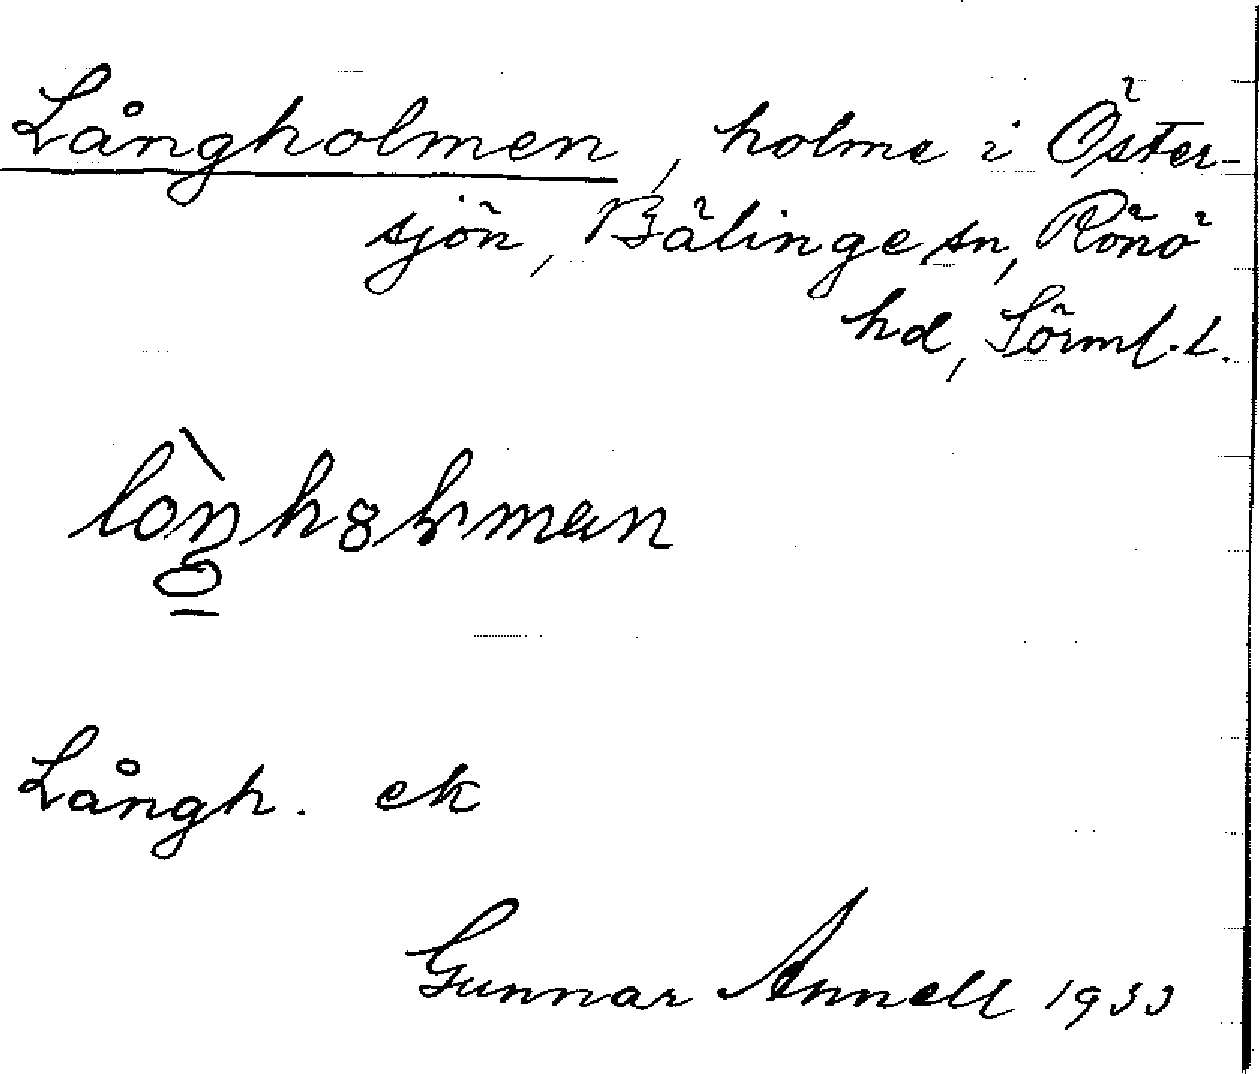 Långholmen, holme i Öster-
sjön, Bälinge sn, Rönö
hd, Sörml. l.
Långh. ek
Gunnar Annell 1933